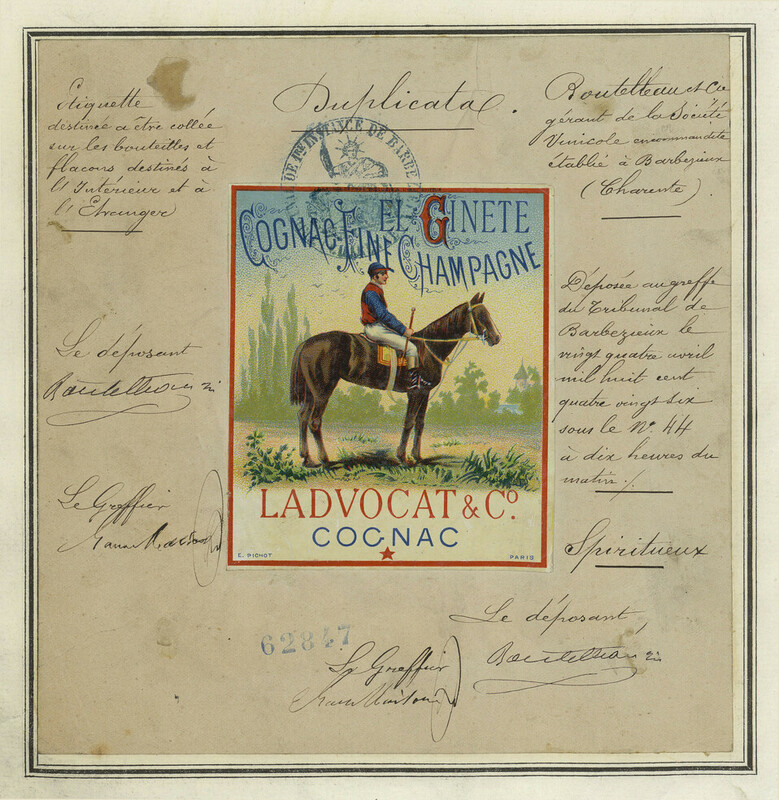 Duplicata.
Etiquette
destinée a être collée
sur les bouteilles et
flacons destinés à
l'Intérieur et à
l'Etranger
Boutelleau et Cie
gérant de la Société
Vinicole en commandite
établie à Barbezieux
(Charente).
DE 1RE INSTANCE DE BARBE
EL GINETE
COGNAC-FINE CHAMPAGNE
LADVOCAT & Co.
COGNAC
E. PICHOT
PARIS
Déposée au greffe
du Tribunal de
Barbezieux le
vingt quatre avril
mil huit cent
quatre vingt six
sous le No. 44
à dix heures du
matin.
Spiritueux
Le déposant
Boutelleau
Le Greffier
62847
Le Greffier
Le déposant,
Boutelleau